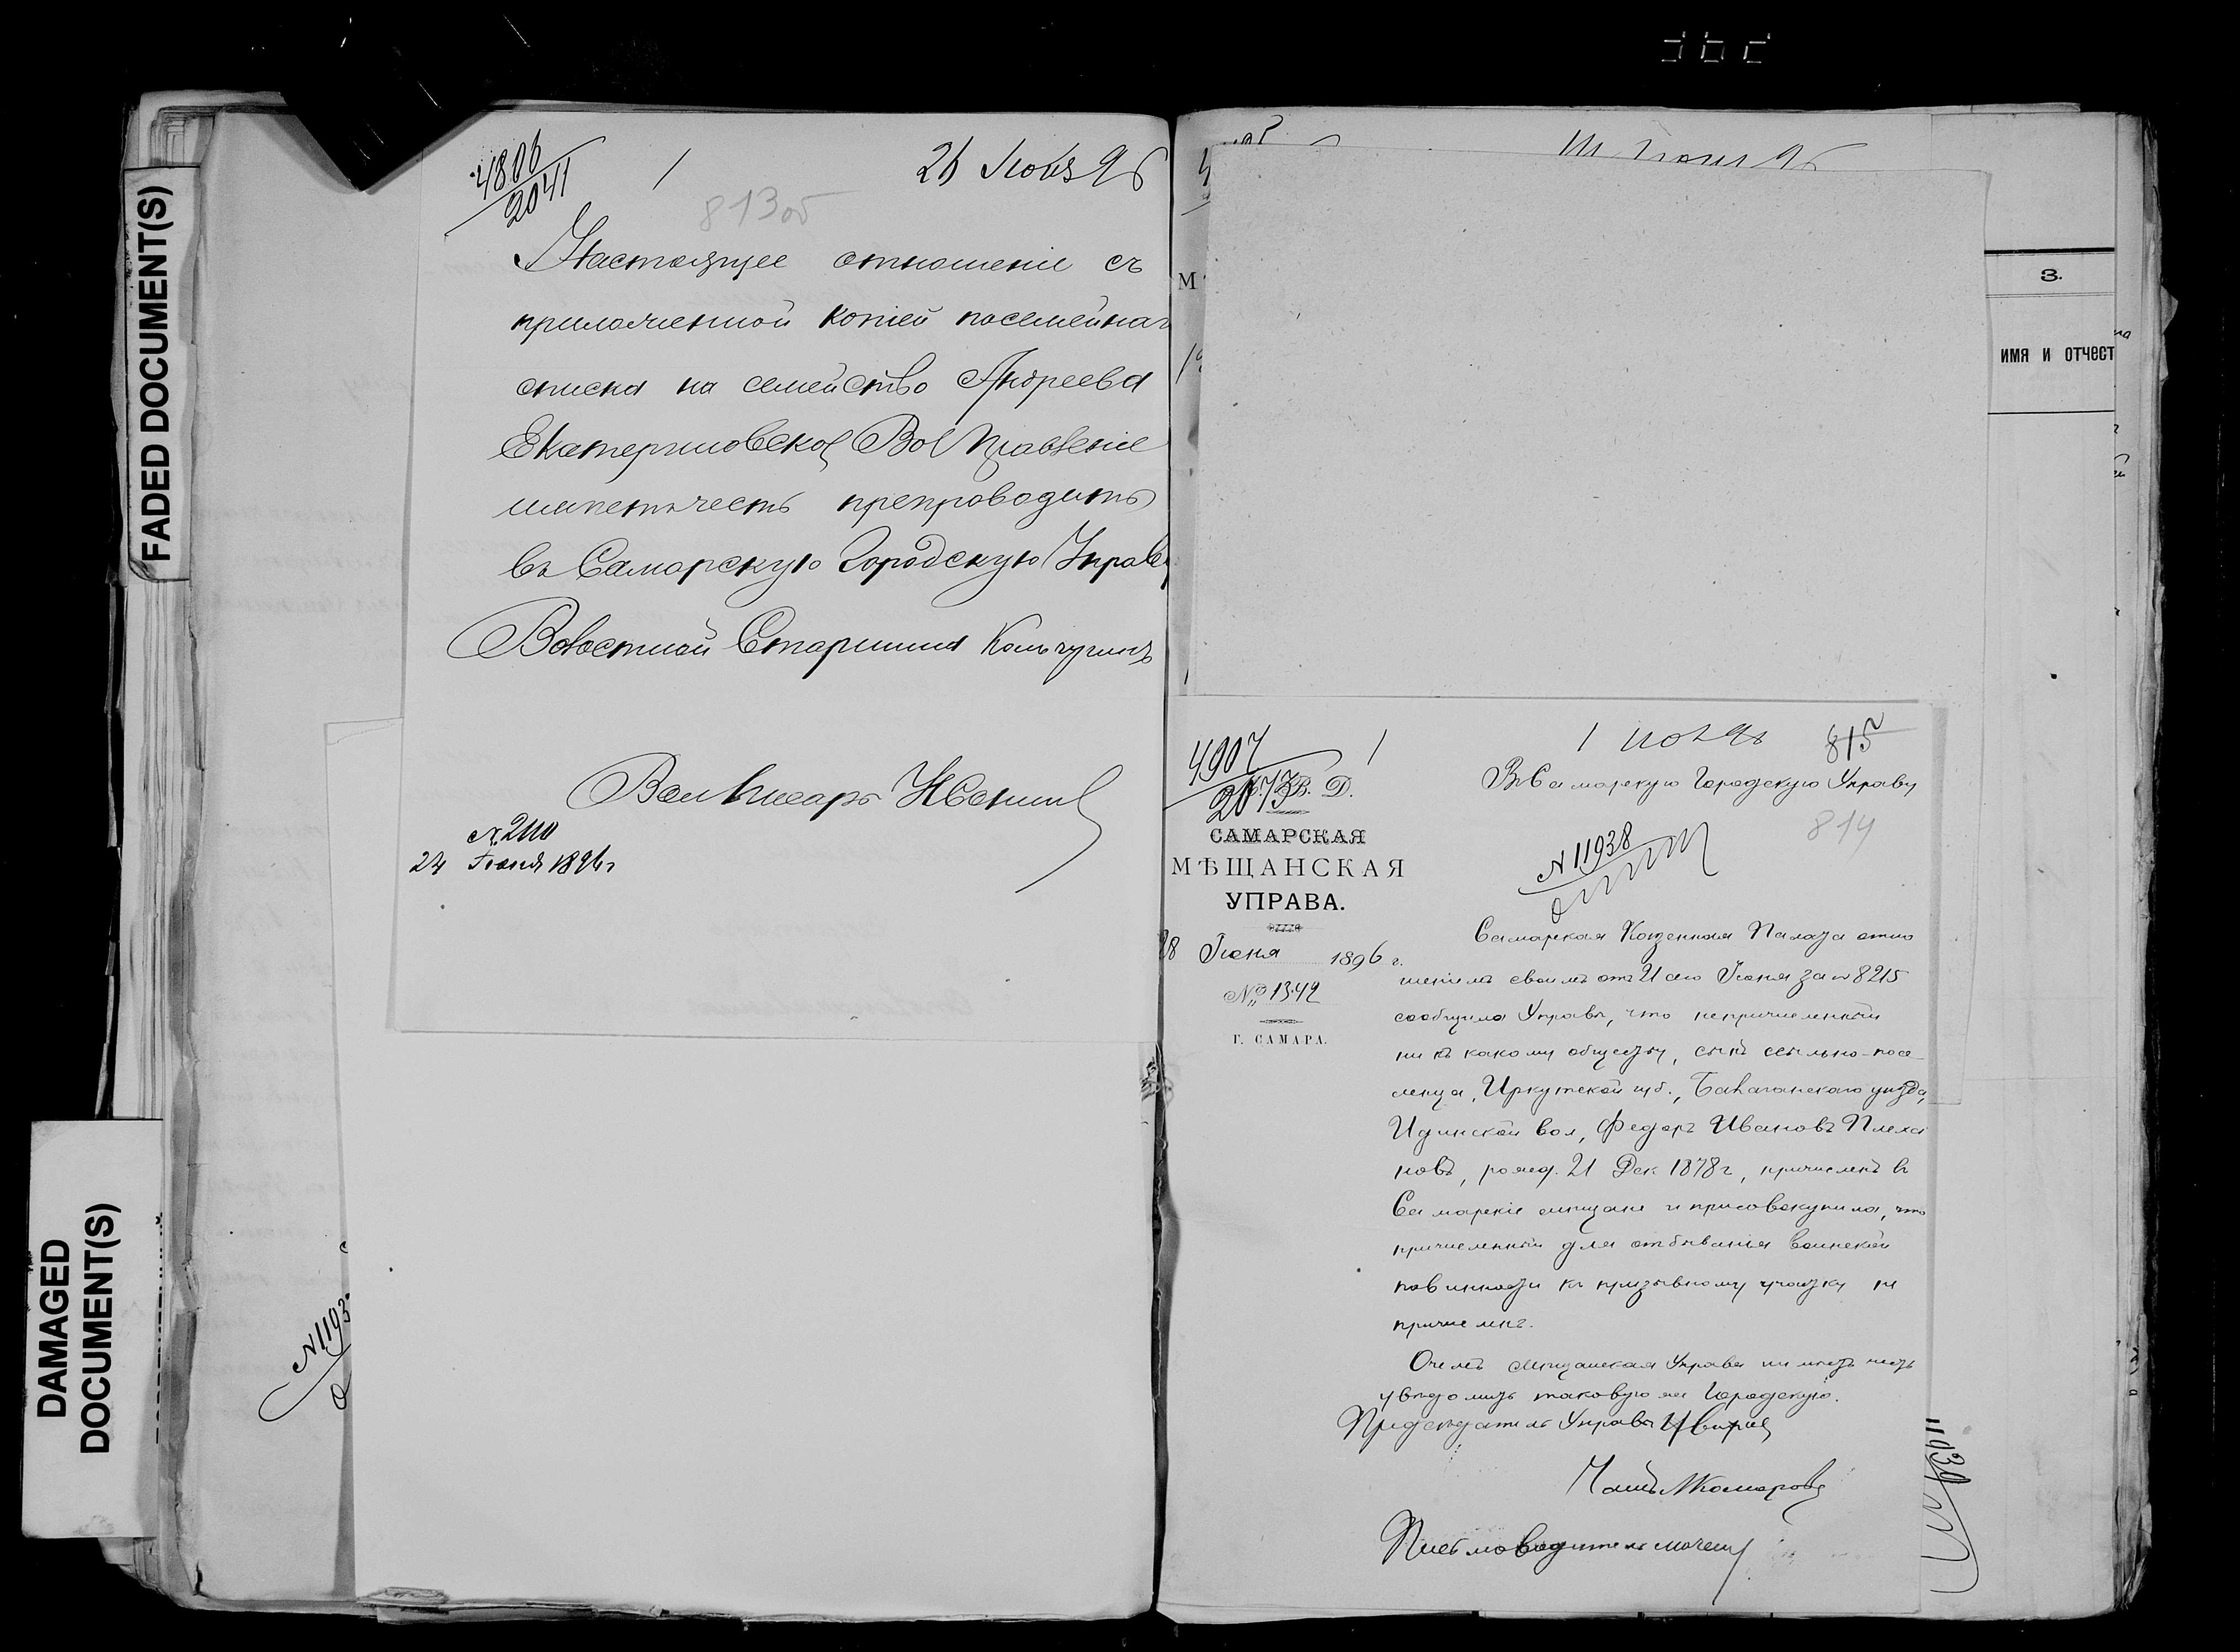 FADED DOCUMENT(S)
DAMAGED
DOCUMENT(S)
4806
2041
1
26 Июня 96
813об
Настоящее отношеніе съ
приложенной копіей посемейнаг
списка на семейство Андреева
Екатериновское Вол Правленіе
имѣетъ честь препроводить
въ Самарскую Городскую Управу
Волостной Старшина Кольчугинъ
Вол Писарь
№ 2110
24 Іюня 1896 г
№ 1193
М
3.
имя и отчест
4907
2073
1
1 июл 96
815
Въ Самарскую Городскую Управу
814
В. Д.
САМАРСКАЯ
МѢЩАНСКАЯ
УПРАВА.
28 Іюня 1896 г.
№ 1342
Г. САМАРА.
№ 11938
Самарская Казенная Палата отно
шеніемъ своимъ отъ 21 сего Іюня за № 8215
сообщила Управѣ, что непричисленный
ни къ какому обществу, сынъ ссыльно-посе-
ленца, Иркутской губ., Балаганскаго уѣзда,
Идинской вол, Федоръ Ивановъ Плеха
новъ, рожд. 21 Дек 1878 г, причисленъ въ
Самарскіе мѣщане и присовокупила, что
причисленный для отбыванія воинской
повинности къ призывному участку не
причисленъ.
О чемъ Мѣщанская Управа имѣетъ честь
увѣдомить таковую же Городскую.
Предсѣдатель Управы
Членъ Комаровъ
Письмоводитель
11939